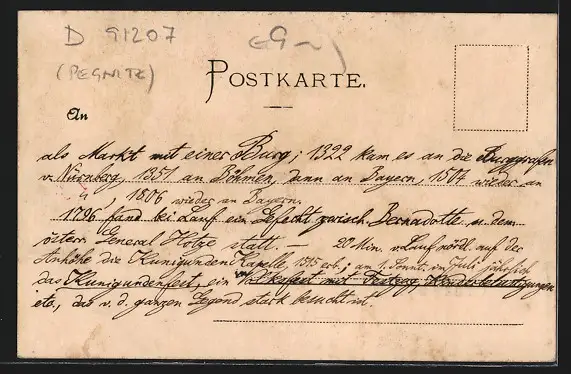 D 91207
(PEGNITZ)
€9~)
POSTKARTE.
An
als Markt mit einer Burg; 1322 kam es an die Burggrafen
v. Nürnberg, 1357 an Böhmen, dann an Bayern, 1504 wieder an
" 1806 wieder an Bayern.
1796 fand bei Lauf ein Gefecht zwisch. Bernadotte u. dem
östern General Hotze statt. — 20 Min. v. Lauf nördl. auf der
Anhöhe die Kunigunden Kapelle, 1515 erb.; am 1. Sonnt. im Juli jährlich
das Kunigundenfest, ein Volksfest mit Festzug, Kinderbelustigungen
etc., das v. d. ganzen Gegend stark besucht ist.